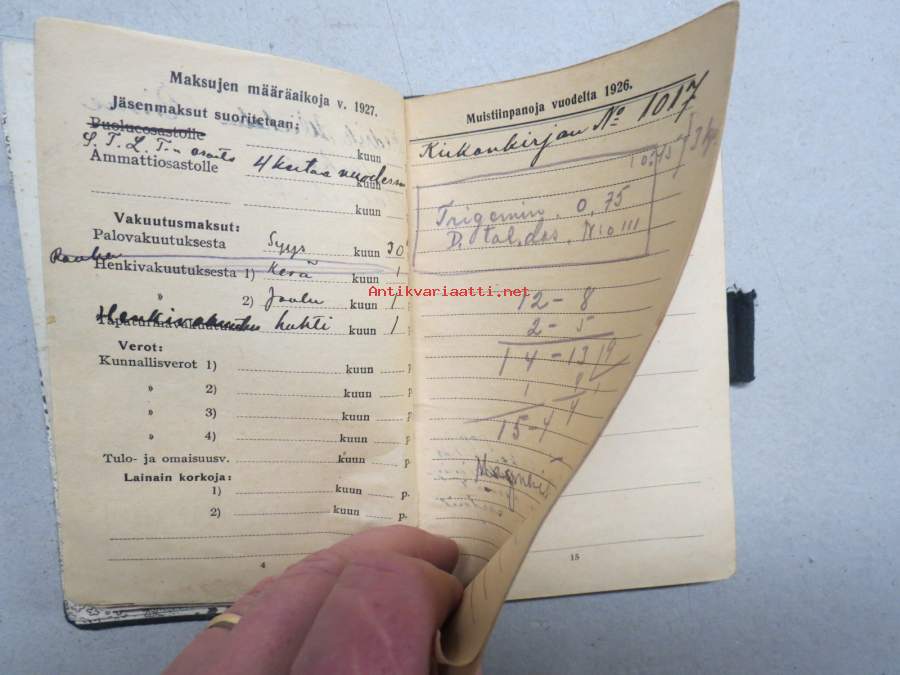 Maksujen määräaikoja v. 1927.
Jäsenmaksut suoritetaan:
Puolueosastolle kuun
S. T. L. T:n
Ammattiosastolle 4 kertaa kuun
kuun
Vakuutusmaksut:
Palovakuutuksesta Syys kuun 30
Henkivakuutuksesta 1) Kesä kuun 1
» 2) Joulu kuun 1
huhti kuun 1
Verot:
Kunnallisverot 1) kuun p
» 2) kuun p
» 3) kuun p
» 4) kuun p
Tulo- ja omaisuusv. kuun p.
Lainain korkoja:
1) kuun p.
2) kuun p.
4
Muistiinpanoja vuodelta 1926.
Kirkonkirjan No 1017
Trigemin. 0,75
D. No III
12 - 8
2 - 5
14 - 13
15 - 4
15
Antikvariaatti.net